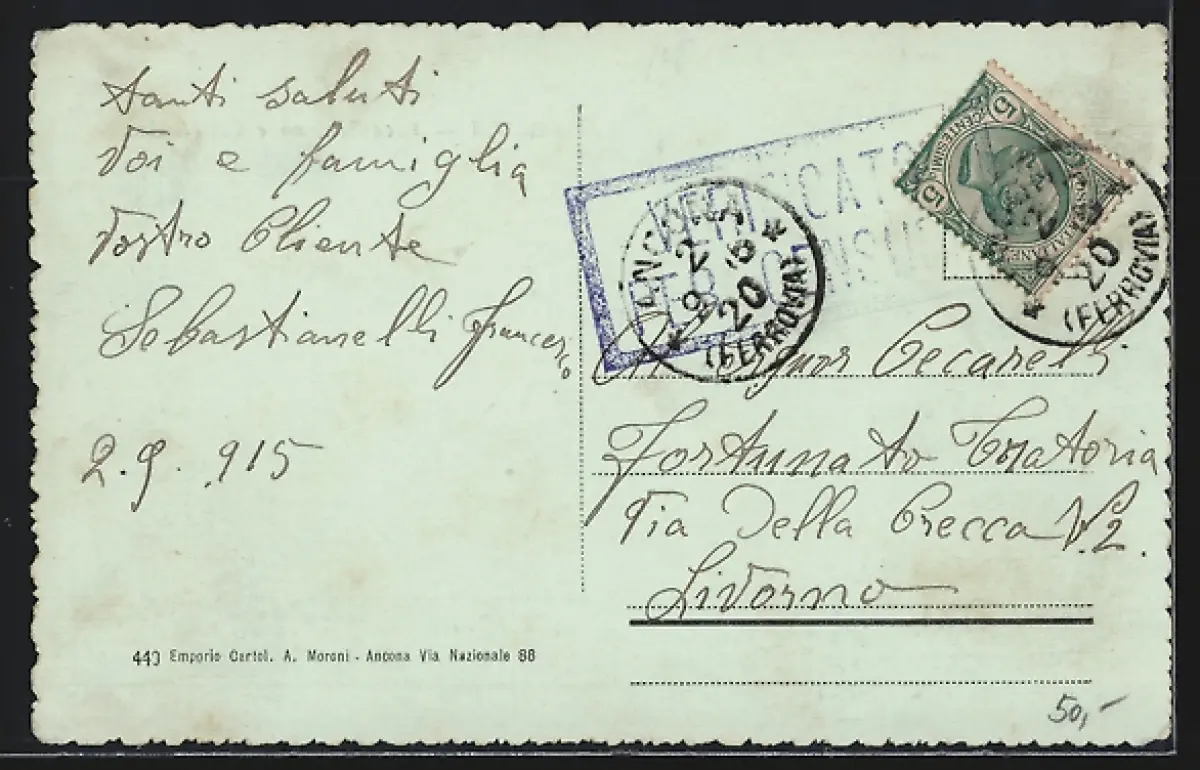 tanti saluti
Voi e famiglia
Vostro Cliente
Sebastianelli Francesco
2.9.915
443 Emporio Cartol. A. Moroni - Ancona Via Nazionale 88
VERIFICATO
CENSURA
ANCONA
2 9 15
20
(FERROVIA)
CENTESIMI
5
5
20
(FERROVIA)
Al Signor Ceccarelli
Fortunato Tratoria
Via Della Crecca N.2.
Livorno
50,-